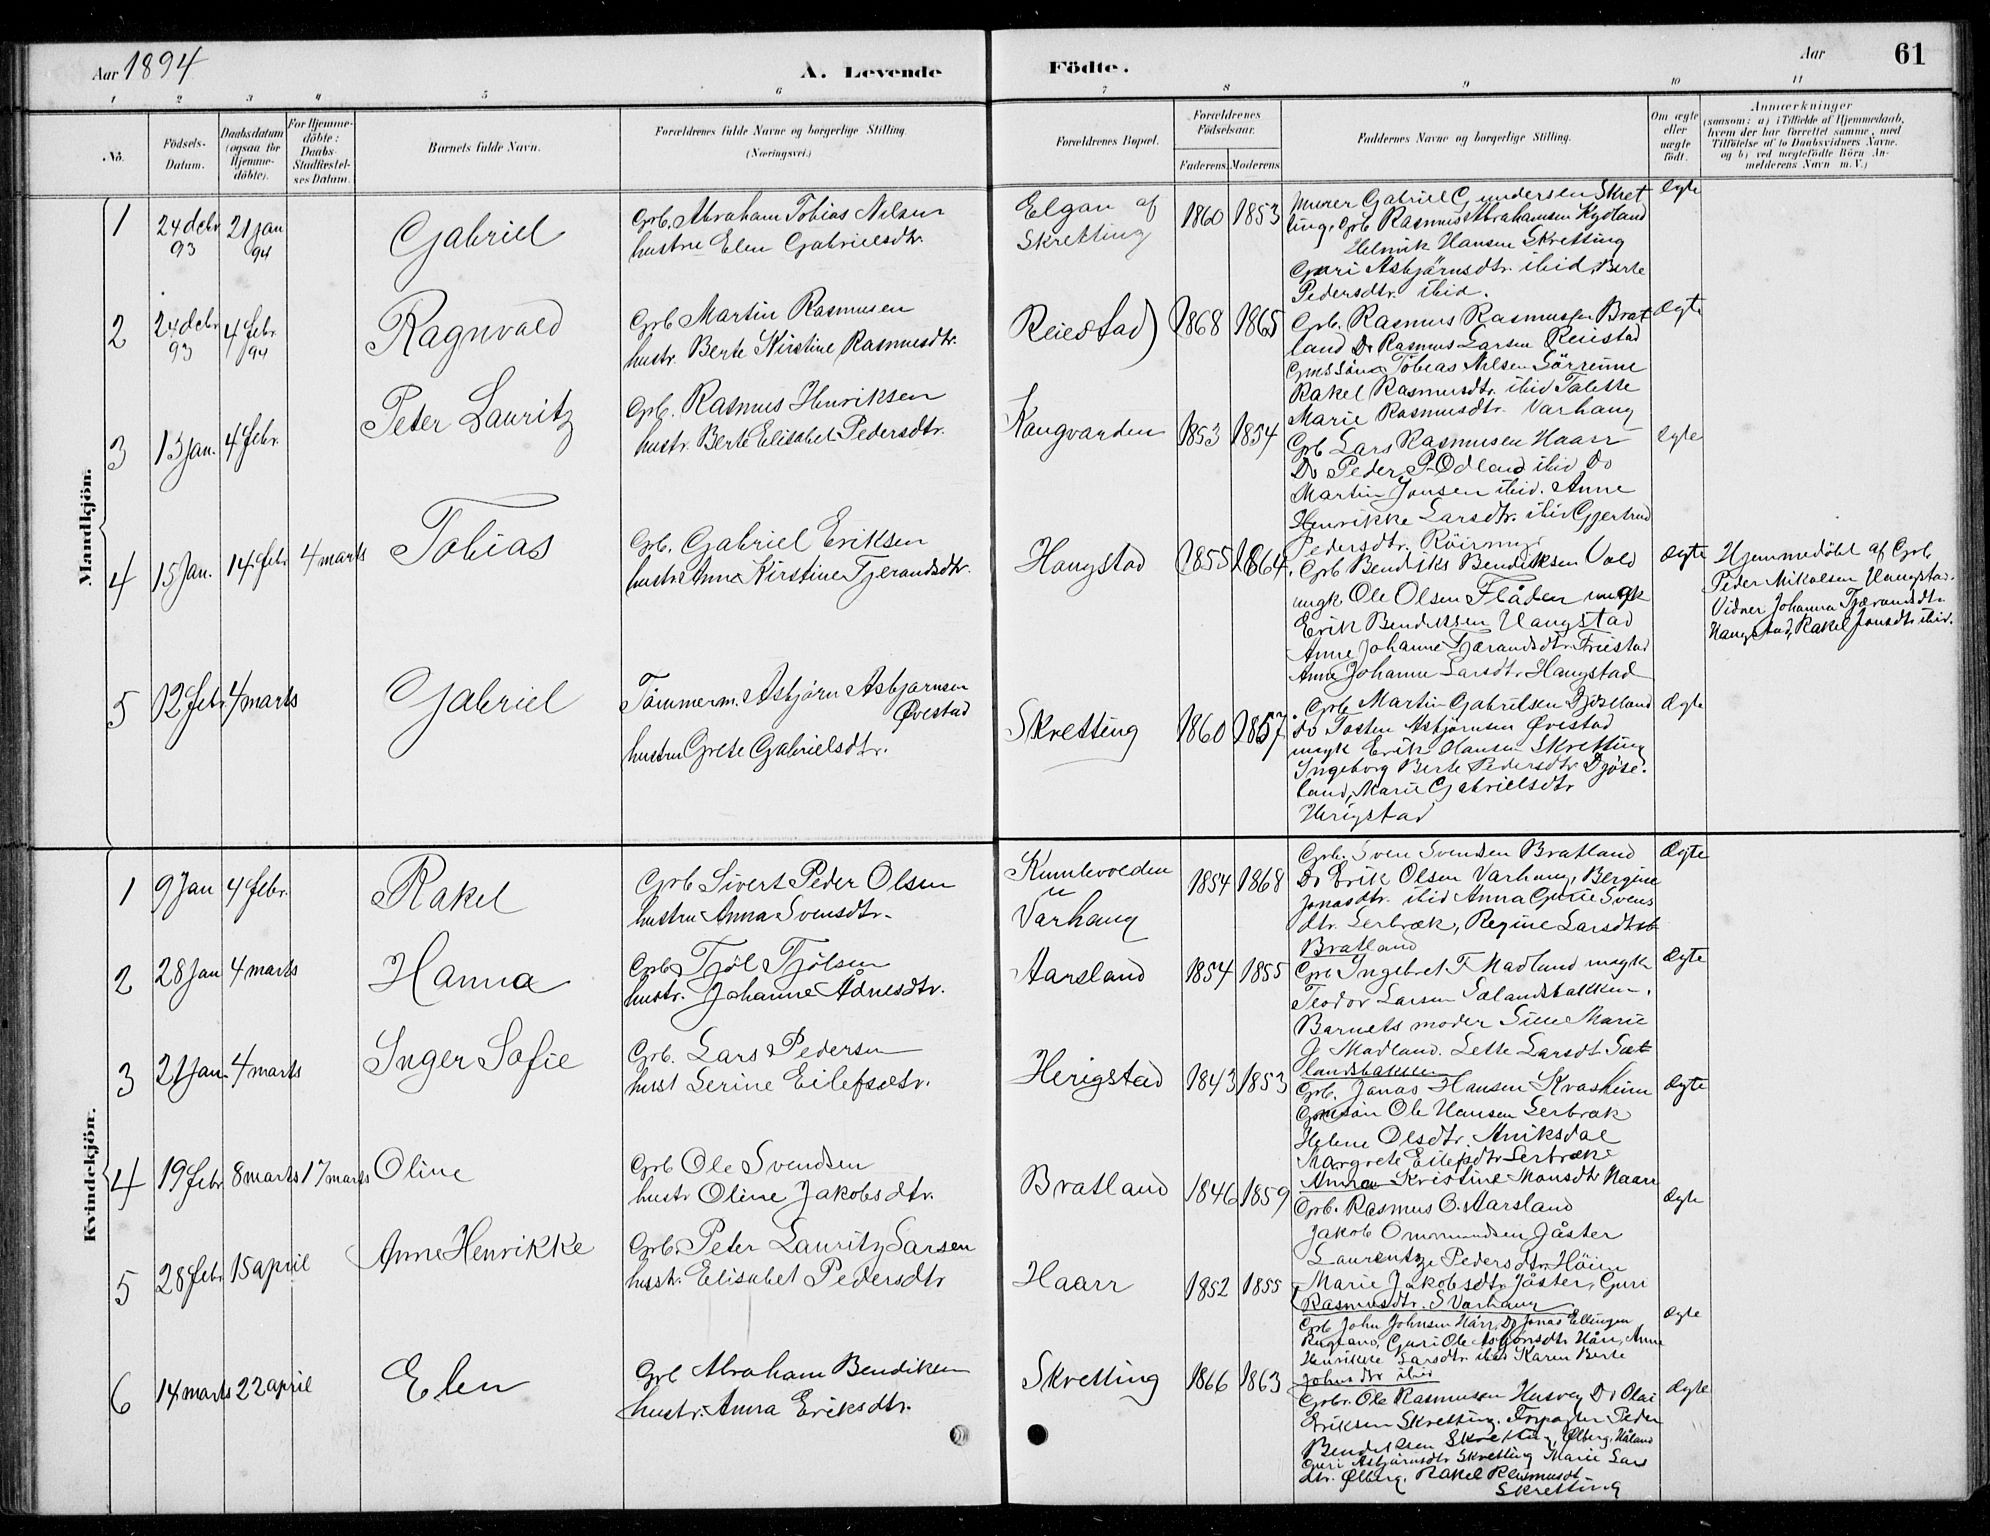 Aar 1894
A. Levende
Födte.
Aar
61
1 2 3 4 5 6 7 8 9 10 11
No.
Födsels-
Datum.
Daabsdatum
(ogsaa for
Hjemme-
döbte).
For Hjemme-
döbte:
Daabs-
Stadfæstel-
ses Datum.
Barnets fulde Navn.
Forældrenes fulde Navne og borgerlige Stilling.
(Næringsvei.)
Forældrenes Bopæl.
Forældrenes
Födselsaar.
Faderens. Moderens.
Faddernes Navne og borgerlige Stilling.
Om ægte
eller
uægte
födt.
Anmærkninger
(saasom: a) i Tilfælde af Hjemmedaab,
hvem der har forrettet samme, med
Tilföielse af to Daabsvidners Navne.
og b) ved uægtefödte Börn An-
melderens Navn m. V.)
Mandkjön.
1
24 decbr
93
21 jan
94
Gabriel
Grb. Abraham Tobias Nilsen
hustru Elen Gabrielsdtr.
Elgan af
Skretting
1860 1853
Murer Gabriel Gundersen Skret
ting, Grb Rasmus Abrahamsen Kydland
Helmik Hansen Skretting
Guri Asbjörnsdtr. ibid, Berte
Pedersdtr. ibid.
Ægte
2
24 decbr
93
4 febr
94
Ragnvald
Grb Martin Rasmusen
hustr. Berte Kirstine Rasmusdtr.
Reiestad
1868 1865
Grb. Rasmus Rasmussen Brat
land Do Rasmus Larsen Reiestad
Tobias Nilsen Sörreime
Rakel Rasmusdtr. ibid Talette
Marie Rasmusdtr. Varhaug
Ægte
3
13 jan.
4 febr.
Peter Lauritz
Grb. Rasmus Henriksen
hustr. Berte Elisabet Pedersdtr.
Kongvarden
1853 1854
Grb Lars Rasmusen Haarr
Do Peder P. Ödland ibid Do
Martin Jonsen ibid. Anne
Henrikke Larsdtr. ibid Gjertrud
Pedersdtr. Röirmyr
Ægte
4
15 Jan.
14 febr
4 marts
Tobias
Grb. Gabriel Eriksen
hustru Anne Kirstine Tjerandsdtr.
Haugstad
1855 1864
Grb Bendiks Bendiksen Vold
ungk Ole Olsen Flåden ungk
Erik Bendiksen Haugstad
Anne Johanne Tjærandsdtr. Friestad
Anne Johanne Larsdtr Haugstad
Ægte
Hjemmedöbt af Grb.
Peder Mikalsen Haugstad.
Vidner Johanna Tjærandsdtr.
Haugstad, Rakel Jonsdtr. ibid.
5
12 febr
4 marts
Gabriel
Tömmerm. Asbjörn Asbjörnsen
Övestad
hustru Grete Gabrielsdtr.
Skretting
1860 1857
Grb. Martin Gabrilsen Djösland
do Tosten Asbjörnsen Övestad
ungk Erik Hansen Skretting
Ingeborg Berte Pedersdtr Djöse-
land, Marie Gabrielsdtr
Herigstad
Ægte
Kvindekjön.
1
9 Jan
4 febr.
Rakel
Grb Sivert Peder Olsen
hustru Anna Svensdtr.
Kumlevolden
u
Varhaug
1854 1868
Grb. Sven Svensen Bratland
Do Erik Olsen Varhaug, Bergine
Jonasdtr. ibid Anna Gurie Svens
dtr. Serbræk, Regine Larsdtr
Bratland
Ægte
2
28 Jan
4 marts
Hanna
Grb. Tjöl Tjölsen
hustr. Johanne Ådnesdtr.
Aarsland
1854 1855
Grb Ingebret T. Madland ungk
Teodor Larsen Sælandsbakken.
Barnets moder Sine Marie
J Madland. Lette Larsdtr Sæ-
landsbakken
Ægte
3
21 Jan.
4 marts
Inger Sofie
Grb. Lars Pedersen
hust Serine Eilefsdtr.
Herigstad
1843 1853
Grb. Jonas Hansen Kvasheim
Gmsön Ole Hansen Serbræk
Helene Olsdtr. Aniksdal
Margrete Eilefsdtr Serbræk
Anna Kristine Monsdtr Haarr
Ægte
4
19 febr
8 marts
17 marts
Oline
Grb Ole Svendsen
hustr Oline Jakobsdtr.
Bratland
1846 1859
Grb. Rasmus O. Aarsland
Jakob Ommundsen Jåster
Laurentze Pedersdtr Höien
Marie Jakobsdtr Jåster, Guri
Rasmusdtr. S Varhaug
Ægte
5
28 febr
15 april
Anne Henrikke
Grb. Peter Lauritz Larsen
hustr. Elisabet Pedersdtr
Haarr
1852 1855
Grb John Johnsen Harr, Do Jonas Ellingsen
Rugland, Guri Ole Asbjörnsdtr Hårr, Anne
Henrikke Larsdtr. ibid Karen Berte
Johnsdtr ibid
Ægte
6
14 marts
22 april
Elen
Grb Abraham Bendiksen
hustr. Anna Eriksdtr.
Skretting
1866 1863
Grbr. Ole Rasmusen Husveg Do Olai
Eriksen Skretting. Forpagter Peder
Bendiksen Skretting, Ölberg, Håland
Guri Asbjörnsdtr Skretting Marie Lars
dtr. Ölberg. Rakel Rasmusdt
Skretting
Ægte